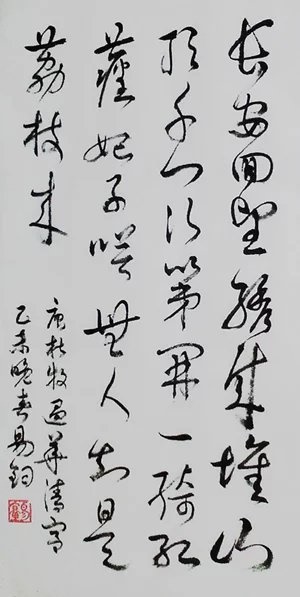 長安回望繡成堆山
頂千門次第開一騎紅
塵妃子咲無人知是
荔枝來
唐杜牧過華清宮
乙未晚春易鈞